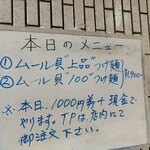 本日のメニュー
①ムール貝"上品"つけ麺
②ムール貝"100"つけ麺
¥1400-
※本日、1000円券+現金で
やります。TPは店内にて
御注文下さい。